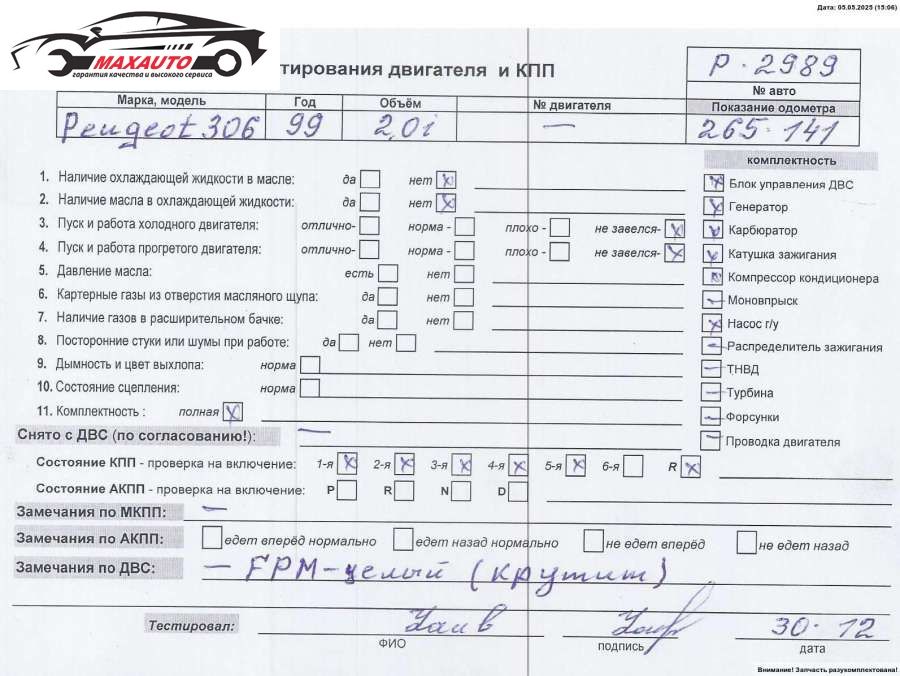 Дата: 05.05.2025 (15:06)
MAXAUTO
гарантия качества и высокого сервиса
тирования двигателя и КПП
P · 2989
№ авто
Марка, модель Год Объём № двигателя Показание одометра
Peugeot 306 99 2,0i — 265 · 141
комплектность
1. Наличие охлаждающей жидкости в масле: да нет
Блок управления ДВС
2. Наличие масла в охлаждающей жидкости: да нет
Генератор
3. Пуск и работа холодного двигателя: отлично- норма - плохо - не завелся-
Карбюратор
4. Пуск и работа прогретого двигателя: отлично- норма - плохо - не завелся-
Катушка зажигания
5. Давление масла: есть нет
Компрессор кондиционера
6. Картерные газы из отверстия масляного щупа: да нет
Моновпрыск
7. Наличие газов в расширительном бачке: да нет
Насос г/у
8. Посторонние стуки или шумы при работе: да нет
Распределитель зажигания
9. Дымность и цвет выхлопа: норма
ТНВД
10. Состояние сцепления: норма
Турбина
11. Комплектность : полная
Форсунки
Снято с ДВС (по согласованию!): —
Проводка двигателя
Состояние КПП - проверка на включение: 1-я 2-я 3-я 4-я 5-я 6-я R
Состояние АКПП - проверка на включение: P R N D
Замечания по МКПП: —
Замечания по АКПП: едет вперёд нормально едет назад нормально не едет вперёд не едет назад
Замечания по ДВС: — ГРМ - целый (крутит)
Тестировал: 30 · 12
ФИО подпись дата
Внимание! Запчасть разукомплектована!